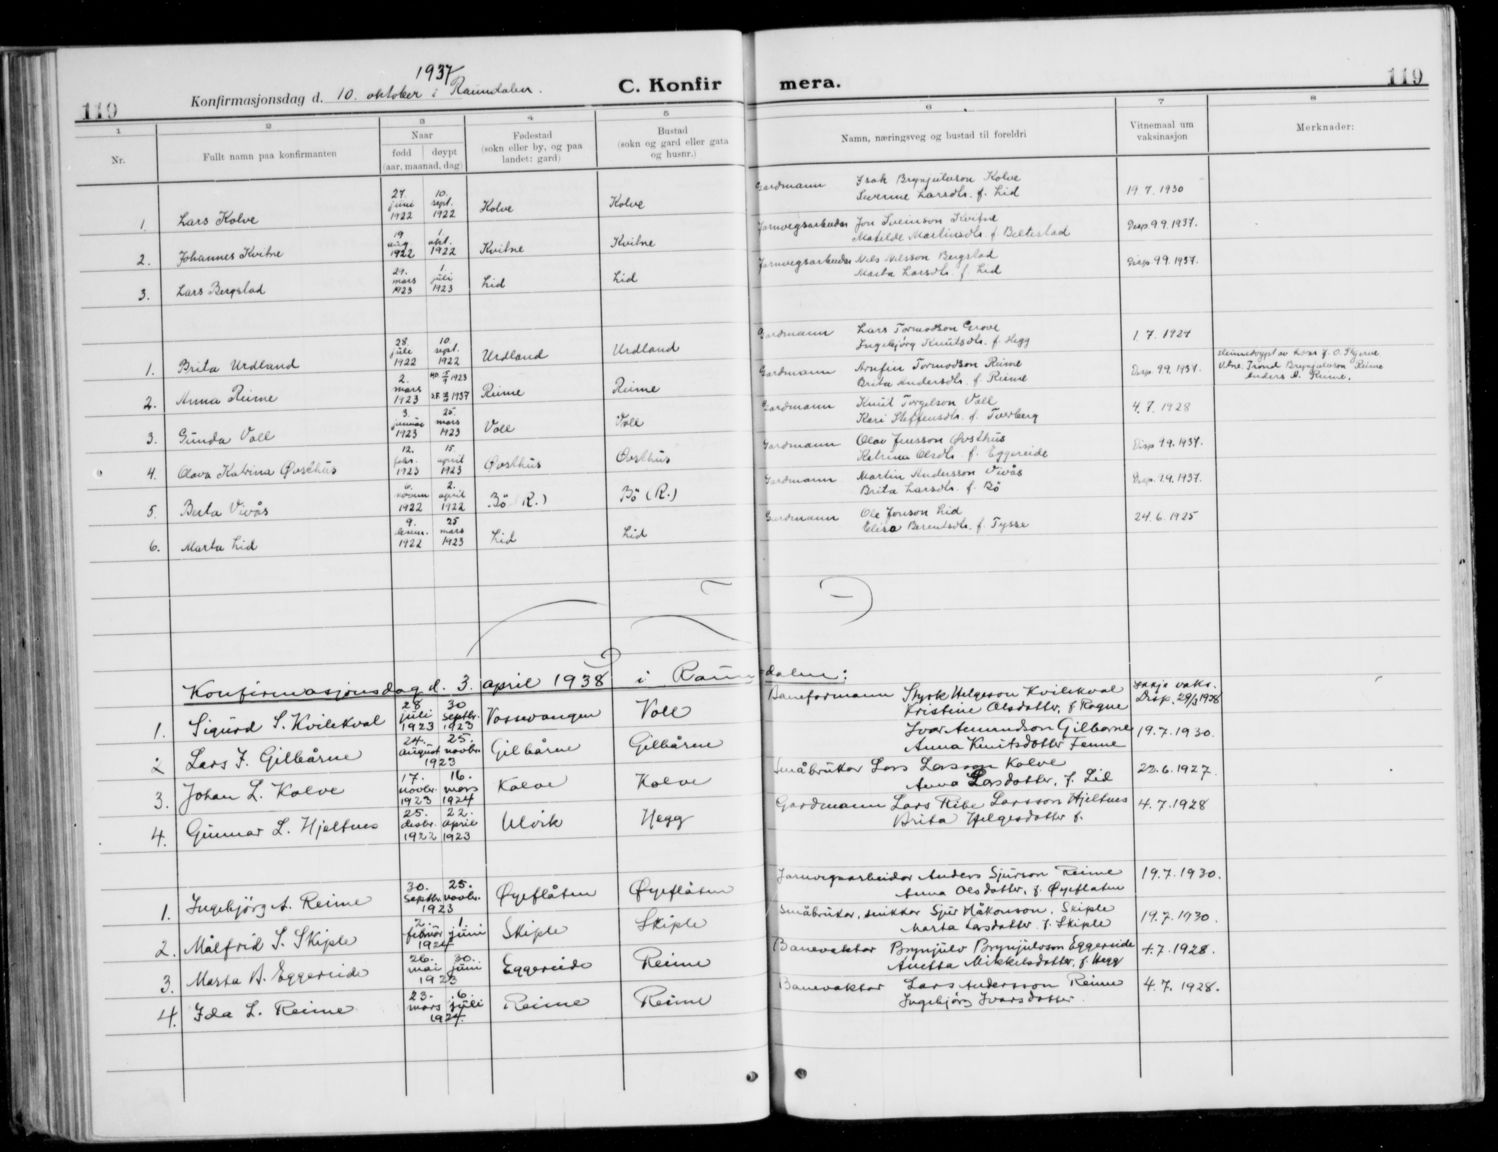 1937
119 Konfirmasjonsdag d. 10. oktober i Raundalen. C. Konfirmera. 119
1 2 3 4 5 6 7 8
Nr. Fullt namn paa konfirmanten Naar fødd døypt (aar, maanad, dag) Fødestad (sokn eller by, og paa landet: gard) Bustad (sokn og gard eller gata og husnr.) Namn, næringsveg og bustad til foreldri Vitnemaal um vaksinasjon Merknader:
1. Lars Kolve 27 juni 1922 10. sept. 1922 Kolve Kolve Gardmann Isak Brynjulvson Kolve Severine Larsdtr. f. Lid 19 7. 1930
2. Johannes Kvitne 19. aug 1922 1. okt. 1922 Kvitne Kvitne Jarnvegsarbeider Jon Sveinson Kvitne Matilde Martinsdtr. f. Beltestad Disp. 9.9.1937.
3. Lars Bergstad 21. mars 1923 1. juli 1923 Lid Lid Jarnvegsarbeider Nils Nilsson Bergstad Marta Larsdtr. f. Lid Disp. 9.9.1937.
1. Brita Urdland 28. juli 1922 10 sept. 1922 Urdland Urdland Gardmann Lars Tormodson Grove Ingebjørg Knutsdtr. f. Hegg 1. 7. 1927
2. Anna Reime 2. mars 1923 1923 1937 Reime Reime Gardmann Arnfin Tormodson Reime Brita Andersdtr. f. Reime Disp 9.9.1937. Heimedøypt av f. O. Skjerve Vitne: Trond Brynjulvson Reime Anders Reime.
3. Gunda Voll 3. januar 1923 25. mars 1923 Voll Voll Gardmann Knut Torgelson Voll Kari Steffensdtr. f. Tverberg 4. 7. 1928
4. Olava Katrina Øvsthus 12. febr. 1923 15. april 1923 Øvsthus Øvsthus Gardmann Olav Jensson Øvsthus Katrina Olsdtr. f. Eggereide Disp. 9.9.1937.
5. Berta Vivås 6. novem 1922 2. april 1922 Bö (R.) Bö (R.) Gardmann Martin Andersson Vivås Brita Larsdtr. f. Bö Disp. 9.9.1937.
6. Marta Lid 9. desem. 1922 25 mars 1923 Lid Lid Gardmann Ole Jonson Lid Elisa Berentsdtr. f. Tysse 24. 6. 1925
Konfirmasjonsdag d. 3. april 1938 i Raundalen:
1. Sigurd S. Kvilekval 28 juli 1923 30 septbr. 1923 Vossevangen Voll Baneformann Styrk Helgeson Kvilekval Kristine Olsdotter, f. Rogne vaks. Disp. 29/3 1938
2 Lars I. Gilbårne 24. august 25. novbr. 1923 Gilbårne Gilbårne Ivar Amundson Gilbarne Anna Knutsdotter Fenne 19. 7. 1930.
3. Johan L. Kolve 17. novbr. 1923 16. mars 1924 Kolve Kolve Småbrukar Lars Larsson Kolve Anna Larsdotter, f. Lid 23. 6. 1927.
4. Gunnar L. Hjeltnes 25. desbr. 1922 22. april 1923 Ulvik Hegg Gardmann Lars Ribe Larsson Hjeltnes Brita Helgesdotter f. 4. 7. 1928
1. Ingebjörg A. Reime 30. septbr. 25. novbr. 1923 Øyeflåten Øyeflåten Jarnvegsarbeidar Anders Sjurson Reime Anna Olsdotter, f. Øyeflaten 19. 7. 1930.
2. Målfrid S. Skiple 2. februar 1. juni 1924 Skiple Skiple Småbrukar, snikkar Sjur Håkonson, Skiple Marta Larsdotter f. Skiple 19. 7. 1930.
3. Marta B. Eggereide 26. mai 30. juni 1923 Eggereide Reime Banevaktar Brynjulv Brynjulvson Eggereide Anetta Mikkelsdotter, f. Hegg 4. 7. 1928.
4. Ida L. Reime 23. mars 6. juli 1924 Reime Reime Banevaktar Lars Andersson Reime Ingebjörg Ivarsdotter 4. 7. 1928.